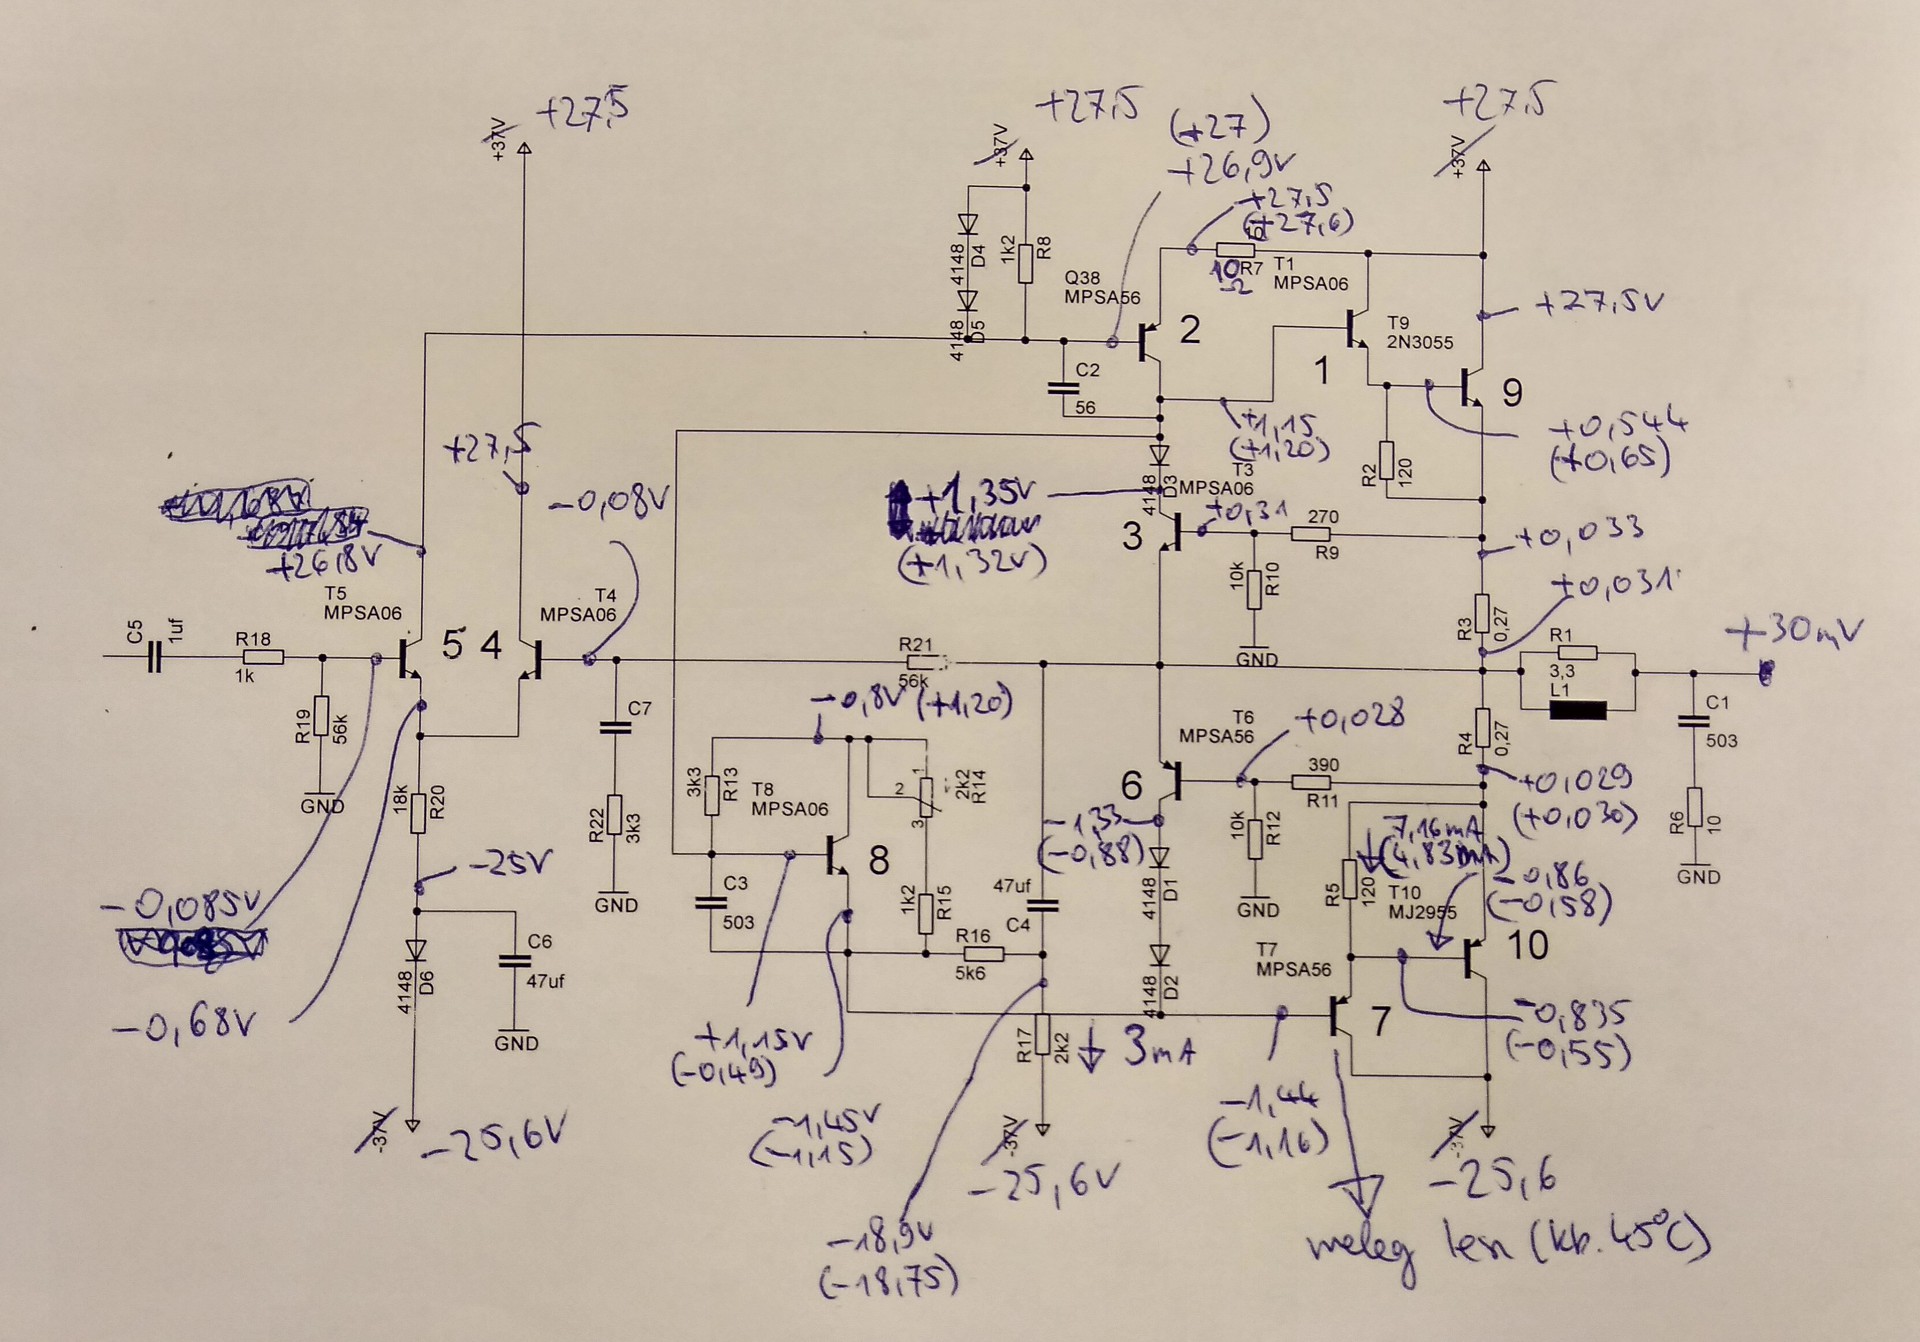 +27,5
+37V
+27,5
+37V
(+27)
+26,9V
+27,5
(+27,6)
+27,5
+37V
4148
D4
1k2
R8
4148
D5
Q38
MPSA56
10
Ω
R7
T1
MPSA06
2
1
T9
2N3055
9
+27,5V
C2
56
+1,15
(+1,20)
R2
120
+0,544
(+0,65)
+27,5
-0,08V
+26,8V
+1,35V
(+1,32V)
4148
D3
T3
MPSA06
3
+0,31
270
R9
10k
R10
GND
+0,033
+0,031
R3
0,27
R1
3,3
L1
+30mV
C5
1uf
R18
1k
T5
MPSA06
5
4
T4
MPSA06
R19
56k
GND
18k
R20
R21
56k
C7
R22
3k3
GND
-0,8V (+1,20)
3k3
R13
T8
MPSA06
8
1
2
3
2k2
R14
1k2
R15
C3
503
R16
5k6
47uf
C4
T6
MPSA56
6
+0,028
390
R11
10k
R12
GND
-1,33
(-0,88)
4148
D1
4148
D2
R4
0,27
+0,029
(+0,030)
C1
503
R6
10
GND
7,16mA
(4,83mA)
R5
120
T10
MJ2955
-0,86
(-0,58)
10
T7
MPSA56
7
-0,835
(-0,55)
-25V
-0,085V
-0,68V
4148
D6
C6
47uf
GND
-37V
-25,6V
+1,15V
(-0,49)
-1,45V
(-1,15)
R17
2k2
3mA
-37V
-25,6V
-18,9V
(-18,75)
-1,44
(-1,16)
-37V
-25,6
meleg lesz (kb. 45°C)